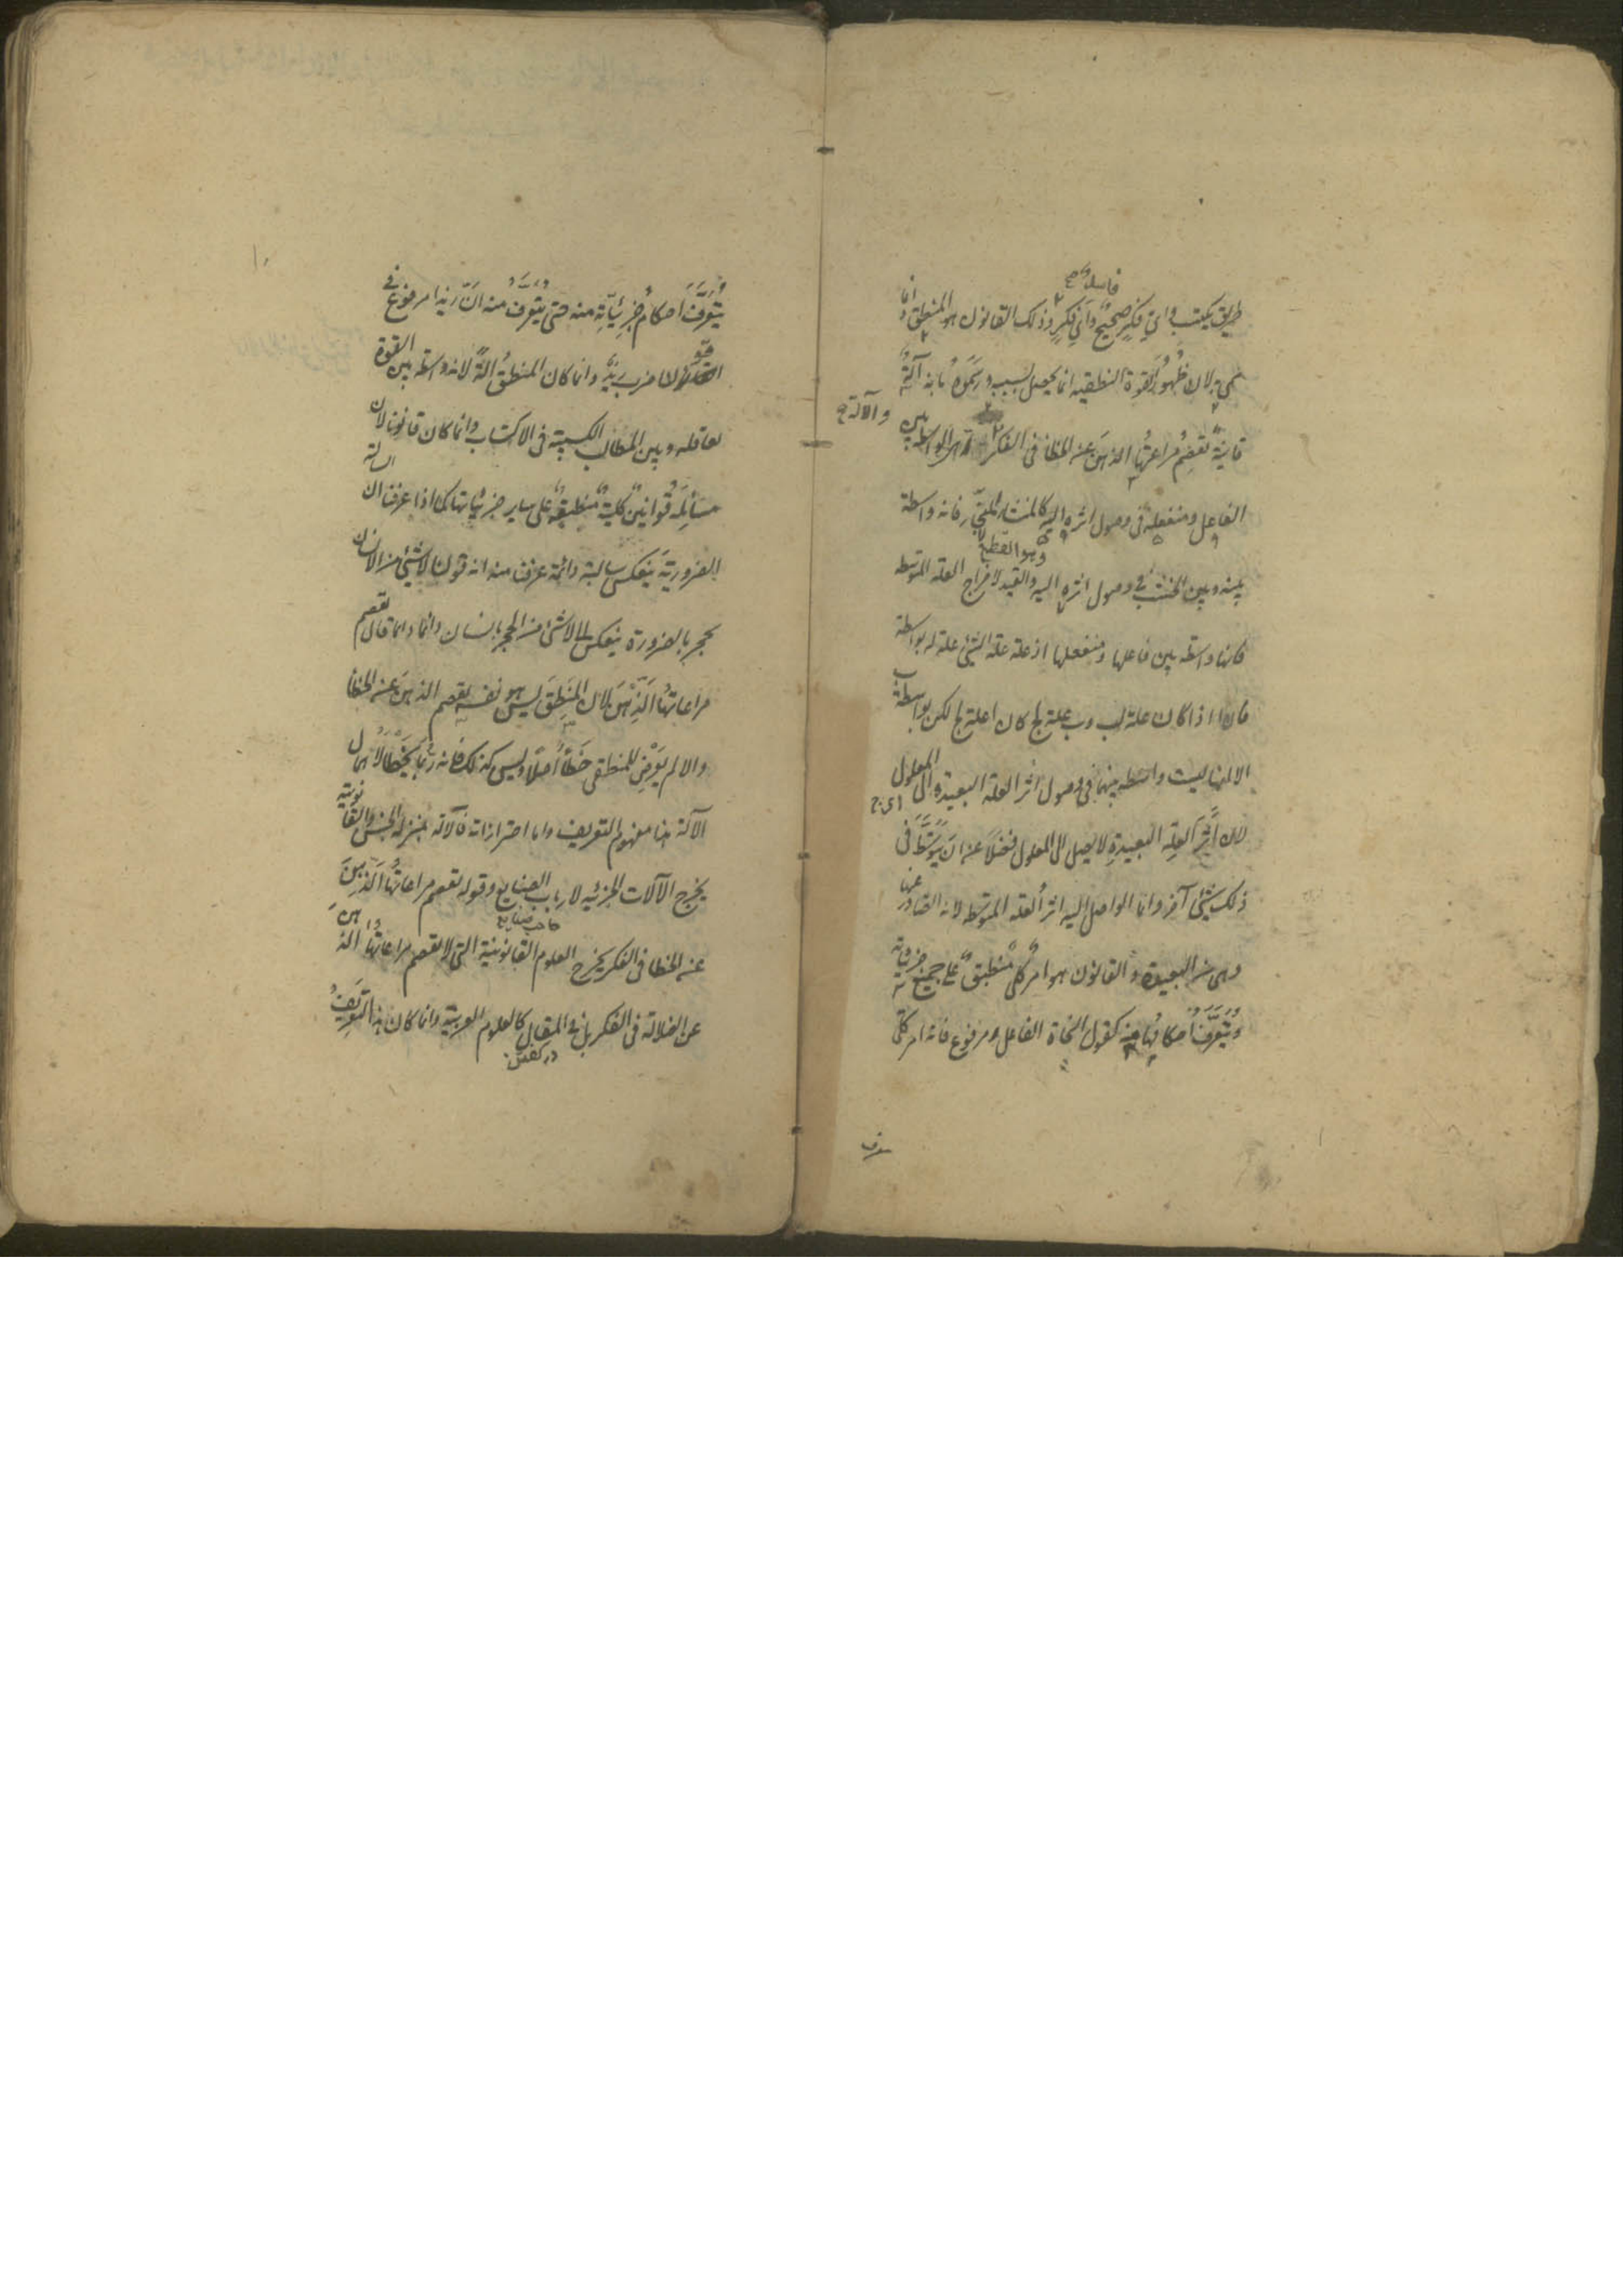 طريق يكتسب واىّ فكرٍ صحيحٌ واىّ فكرٍ فاسدٌ وذلك القانون هو المنطق وانما
سمى به لان ظهورَ القوة النطقيه انما يحصل بسببه ورسموه بانه آلةٌ
قانونيةٌ تعصم مراعاتُها الذهنَ عن الخطا فى الفكر والآلة هى الواسطة بين
الفاعل ومنفعله فى وصول اثره اليه كالمنشار للنجار فانه واسطة
بينه وبين الخشب فى وصول اثره اليه والقيد الاخير لاخراج العلة المتوسطه
فانها واسطه بين فاعلها ومنفعلها اذ علة علة الشئ علة له بواسطة
فان ا اذا كان علة لب وب علة لج كان ا علة لج لكن بواسطة ب
الا انها ليست واسطه بينهما فى وصول اثر العلة البعيدة الى المعلول
اى ج
لان اثرَ العلةِ البعيدةِ لا يصل الى المعلول فضلًا عن ان يتوسّط فى
ذلك شئ آخر وانما الواصل اليه اثر العلة المتوسطه لانه الصادر عنها
وهى من البعيدة والقانون هو امرٌ كلىٌ منطبقٌ على جميع جزوياته
ويتعرّف احكامُها منه كقول النحاة الفاعل مرفوع فانه امر كلى
يتعرّف احكامُ جزئيّاتِه منه حتى يتعرّف منه انّ زيدا مرفوع فى
قولنا ضرب زيدٌ وانما كان المنطقُ آلةً لانه واسطه بين القوة
العاقله وبين المطالب الكسبية فى الاكتساب وانما كان قانونا لان
مسائلَه قوانينٌ كليةٌ منطبقةٌ على ساير جزئياتها كما اذا عرفنا ان السالبة
الضروريةَ ينعكس سالبة دائمة عرفنا منه ان قولنا لا شئ من الانسان
بحجر بالضرورة ينعكس الى لا شئ من الحجر بانسان دائما وانما قال تعصم
مراعاتُها الذهنَ لان المنطقَ ليس هو نفسه يعصم الذهنَ عن الخطأ
والا لم يعرض للمنطقى خطأٌ اصلًا وليس كذلك فانه ربما يخطأ لاهمال
الآلة هذا مفهوم التعريف واما احترازاته فالآلة بمنزلة الجنس والقانونية
يخرج الآلات الجزئيه لارباب الصنايع وقوله تعصم مراعاتُها الذهنَ
صاحب صنايع
عن الخطا فى الفكر يخرج العلوم القانونية التى لا تعصم مراعاتُها الذهن
عن الضلالة فى الفكر بل فى المقال كالعلوم العربية وانما كان هذا التعريفُ
در كفتن